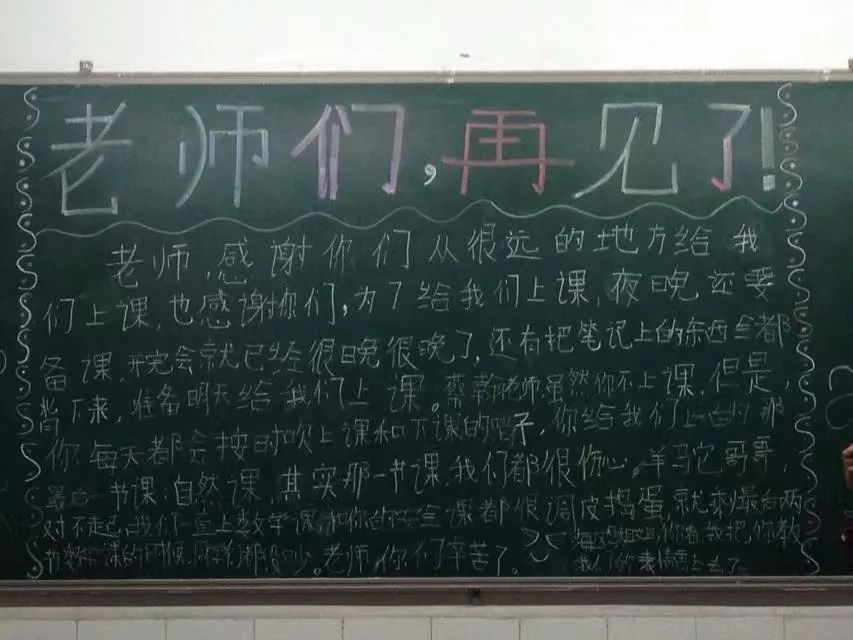 老师们,再见了!
老师,感谢你们从很远的地方给我
们上课,也感谢你们,为了给我们上课,夜晚还要
备课,开完会就已经很晚很晚了,还有把笔记上的东西全都
背下来,准备明天给我们上课。蔡老师,虽然你不上课,但是,
你每天都会按时吹上课和下课的哨子,你给我们上的那
一节课:自然课,其实那一节课,我们都很伤心。羊驼哥哥,
对不起,我们一直上数学课和你的安全课都很调皮捣蛋,就剩最后两
节数学课的时候,我们都没吵。老师,你们辛苦了。
你看,我把你教
我们的表情画上去了。